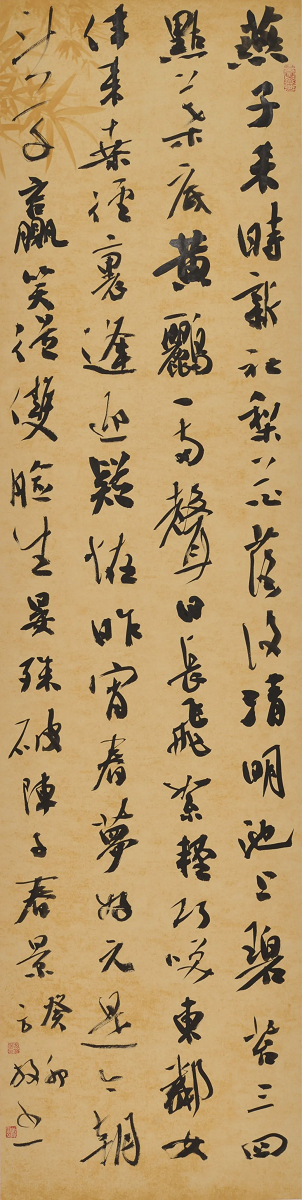 燕子来時新社梨花落後清明池上碧苔三四
點葉底黄鸝一两聲日長飛絮輕巧笑東鄰女
伴采桑徑裏逢迎疑怪昨宵春夢好元是今朝
鬥草贏笑從雙臉生晏殊破陳子春景
癸卯